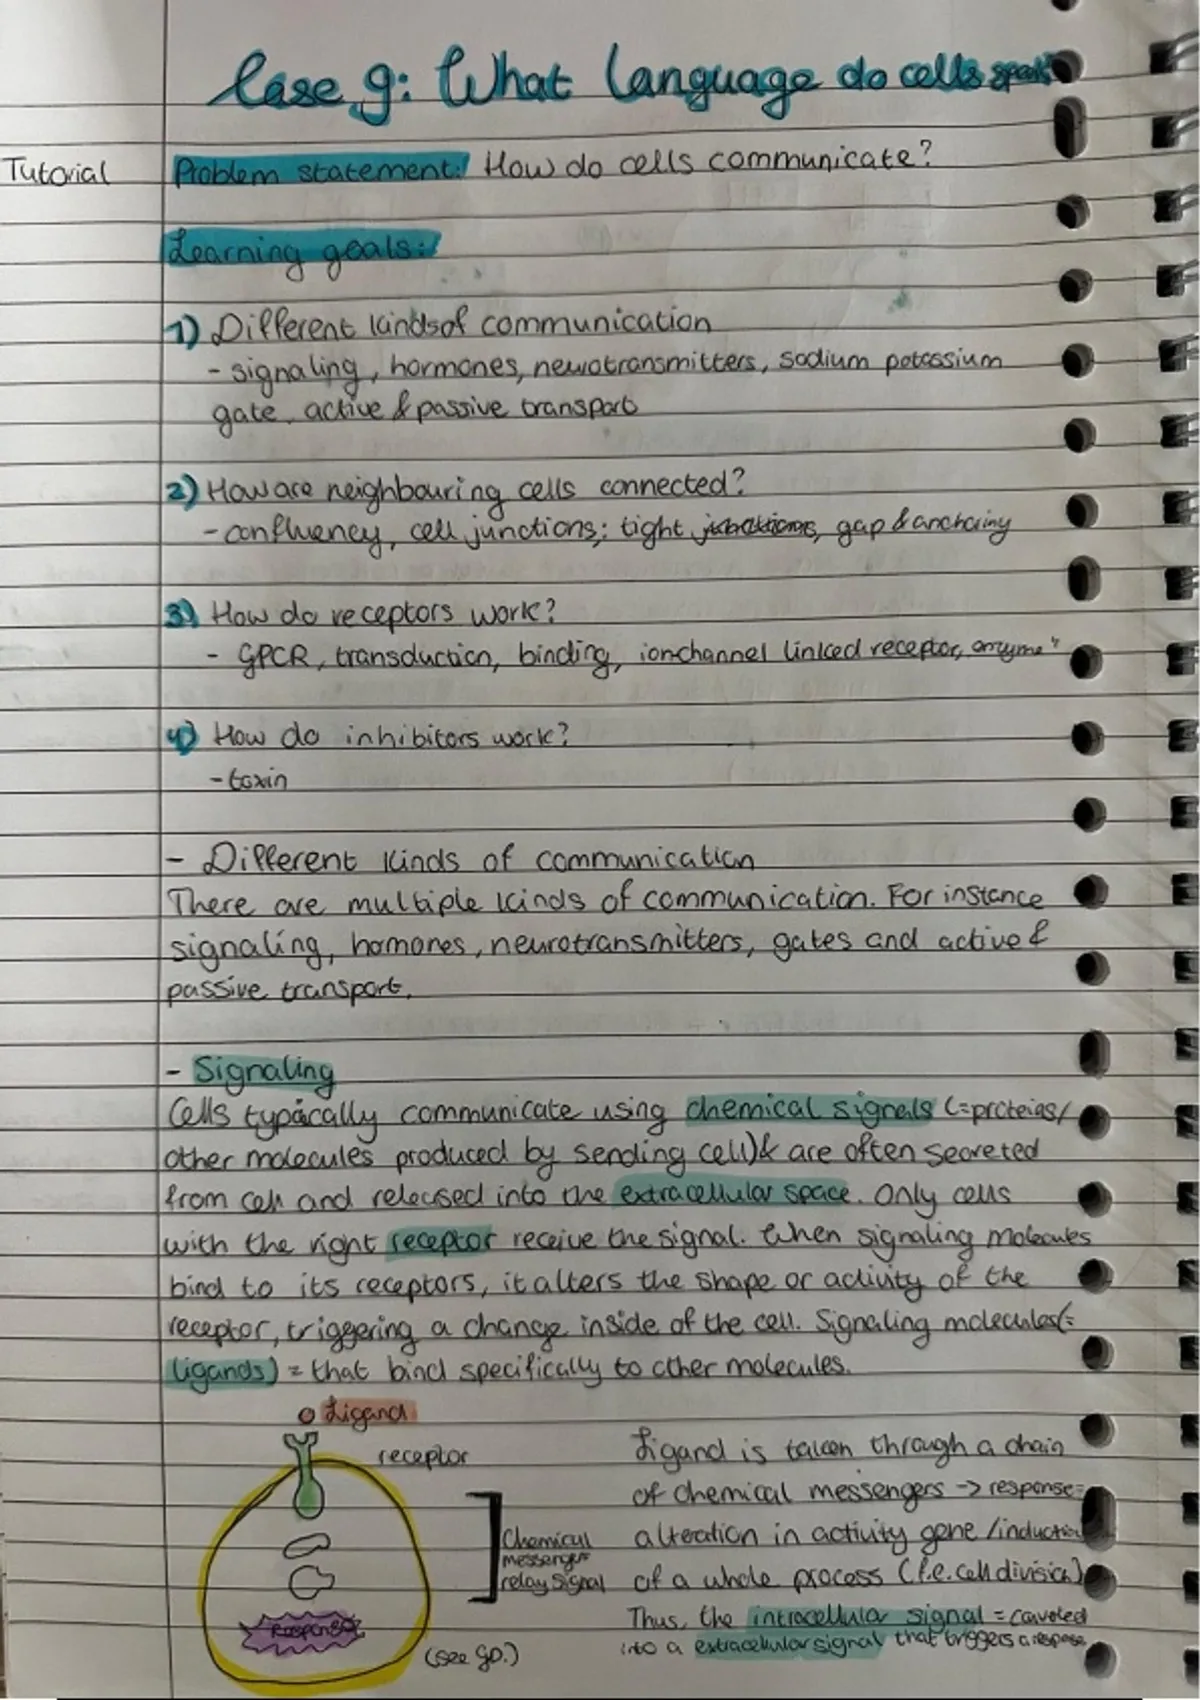 Case 9: What language do cells speak
Tutorial
Problem statement: How do cells communicate?
Learning goals:
1) Different kinds of communication
- signaling, hormones, neurotransmitters, sodium potassium
gate, active & passive transport
2) How are neighbouring cells connected?
- confluency, cell junctions; tight gap & anchoring
3) How do receptors work?
- GPCR, transduction, binding, ionchannel linked receptor, enzyme "
4) How do inhibitors work?
- toxin
- Different kinds of communication
There are multiple kinds of communication. For instance
signaling, hormones, neurotransmitters, gates and active &
passive transport.
- Signaling
Cells typically communicate using chemical signals (=proteins/
other molecules produced by sending cell) & are often secreted
from cell and released into the extracellular space. Only cells
with the right receptor receive the signal. When signaling molecules
bind to its receptors, it alters the shape or activity of the
receptor, triggering a change inside of the cell. Signaling molecules (=
ligands) = that bind specifically to other molecules.
Ligand
receptor
Chemical
messenger
relay signal
Response
(see gp.)
Ligand is taken through a chain
of chemical messengers -> response =
alteration in activity gene /induction
of a whole process (f.e. cell division)
Thus, the intracellular signal =
into a extracellular signal that triggers a response